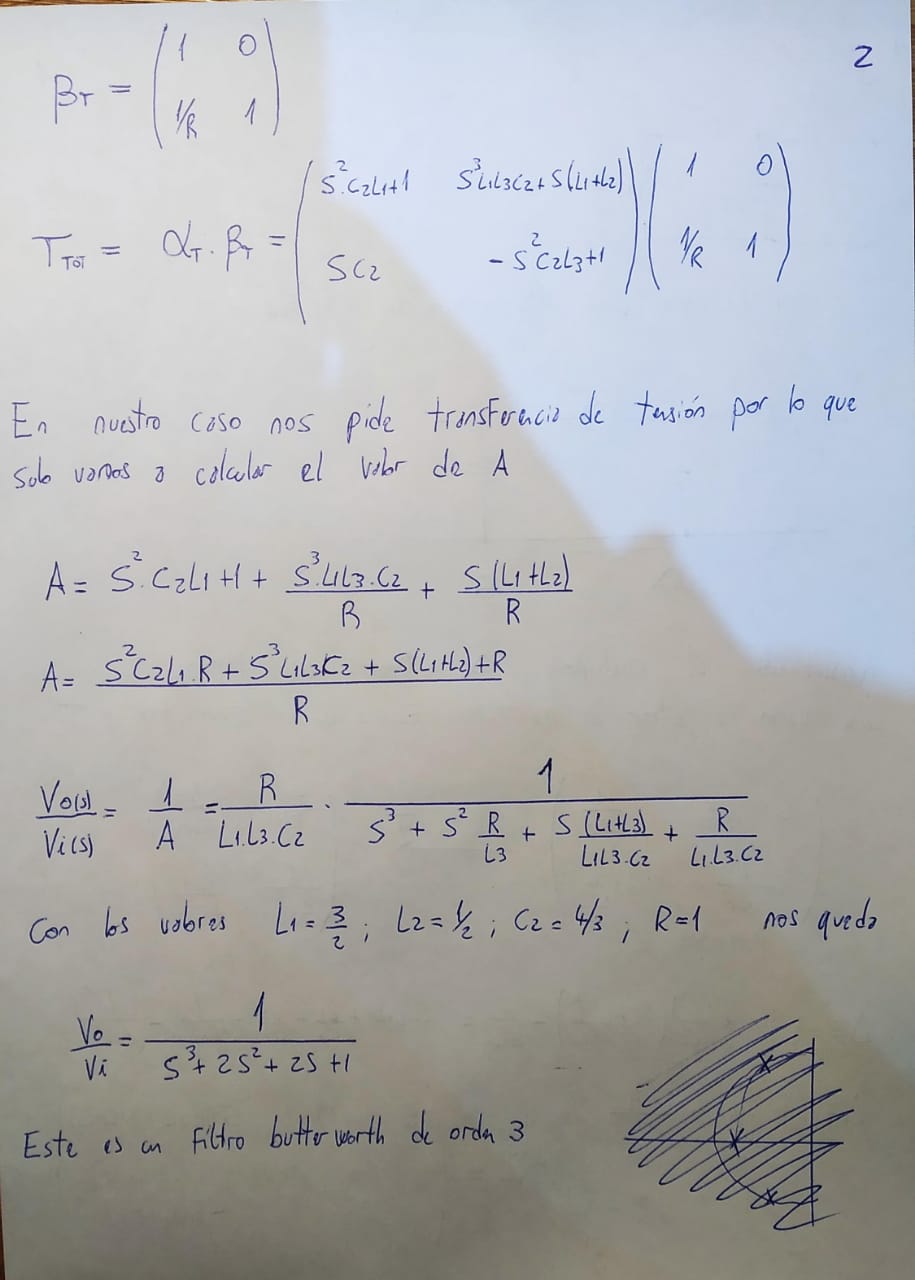 2
βT = ( 1 0 ; 1/R 1 )
TTOT = αT . βT = ( S².C2L1+1 S³L1L3C2+S(L1+L2) ; SC2 -S²C2L3+1 ) ( 1 0 ; 1/R 1 )
En nuestro caso nos pide transferencia de tensión por lo que
solo vamos a calcular el valor de A
A = S².C2L1+1 + S³.L1L3.C2/R + S(L1+L2)/R
A = (S²C2L1.R + S³L1L3C2 + S(L1+L2)+R)/R
Vo(s)/Vi(s) = 1/A = R/(L1.L3.C2) . 1/(S³ + S² R/L3 + S(L1+L3)/(L1L3.C2) + R/(L1.L3.C2))
Con los valores L1 = 3/2 ; L2 = 1/2 ; C2 = 4/3 ; R=1 nos queda
Vo/Vi = 1/(S³+2S²+2S+1)
Este es un Filtro butterworth de orden 3